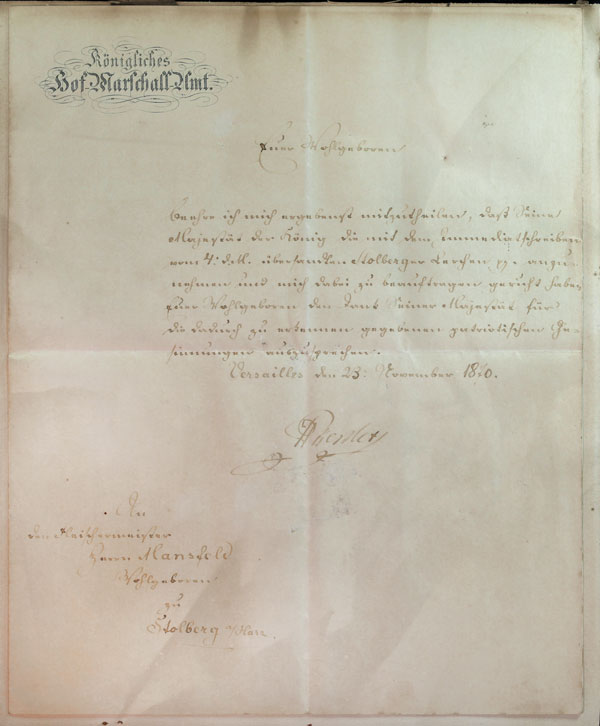 Königliches
Hof-Marschall-Amt.
Euer Wohlgeboren
beehre ich mich ergebenst mitzutheilen, daß Seine
Majestät der König die mit dem Immediatschreiben
vom 4. d. M. übersandten Stolberger Lerchen pp. anzu-
nehmen und mich dabei zu beauftragen geruht haben
Euer Wohlgeboren den Dank Seiner Majestät für
die dadurch zu erkennen gegebenen patriotischen Ge-
sinnungen auszusprechen.
Versailles den 23. November 1870.
An
den Fleischermeister
Herrn Mansfeld
Wohlgeboren
zu
Stolberg a/Harz.